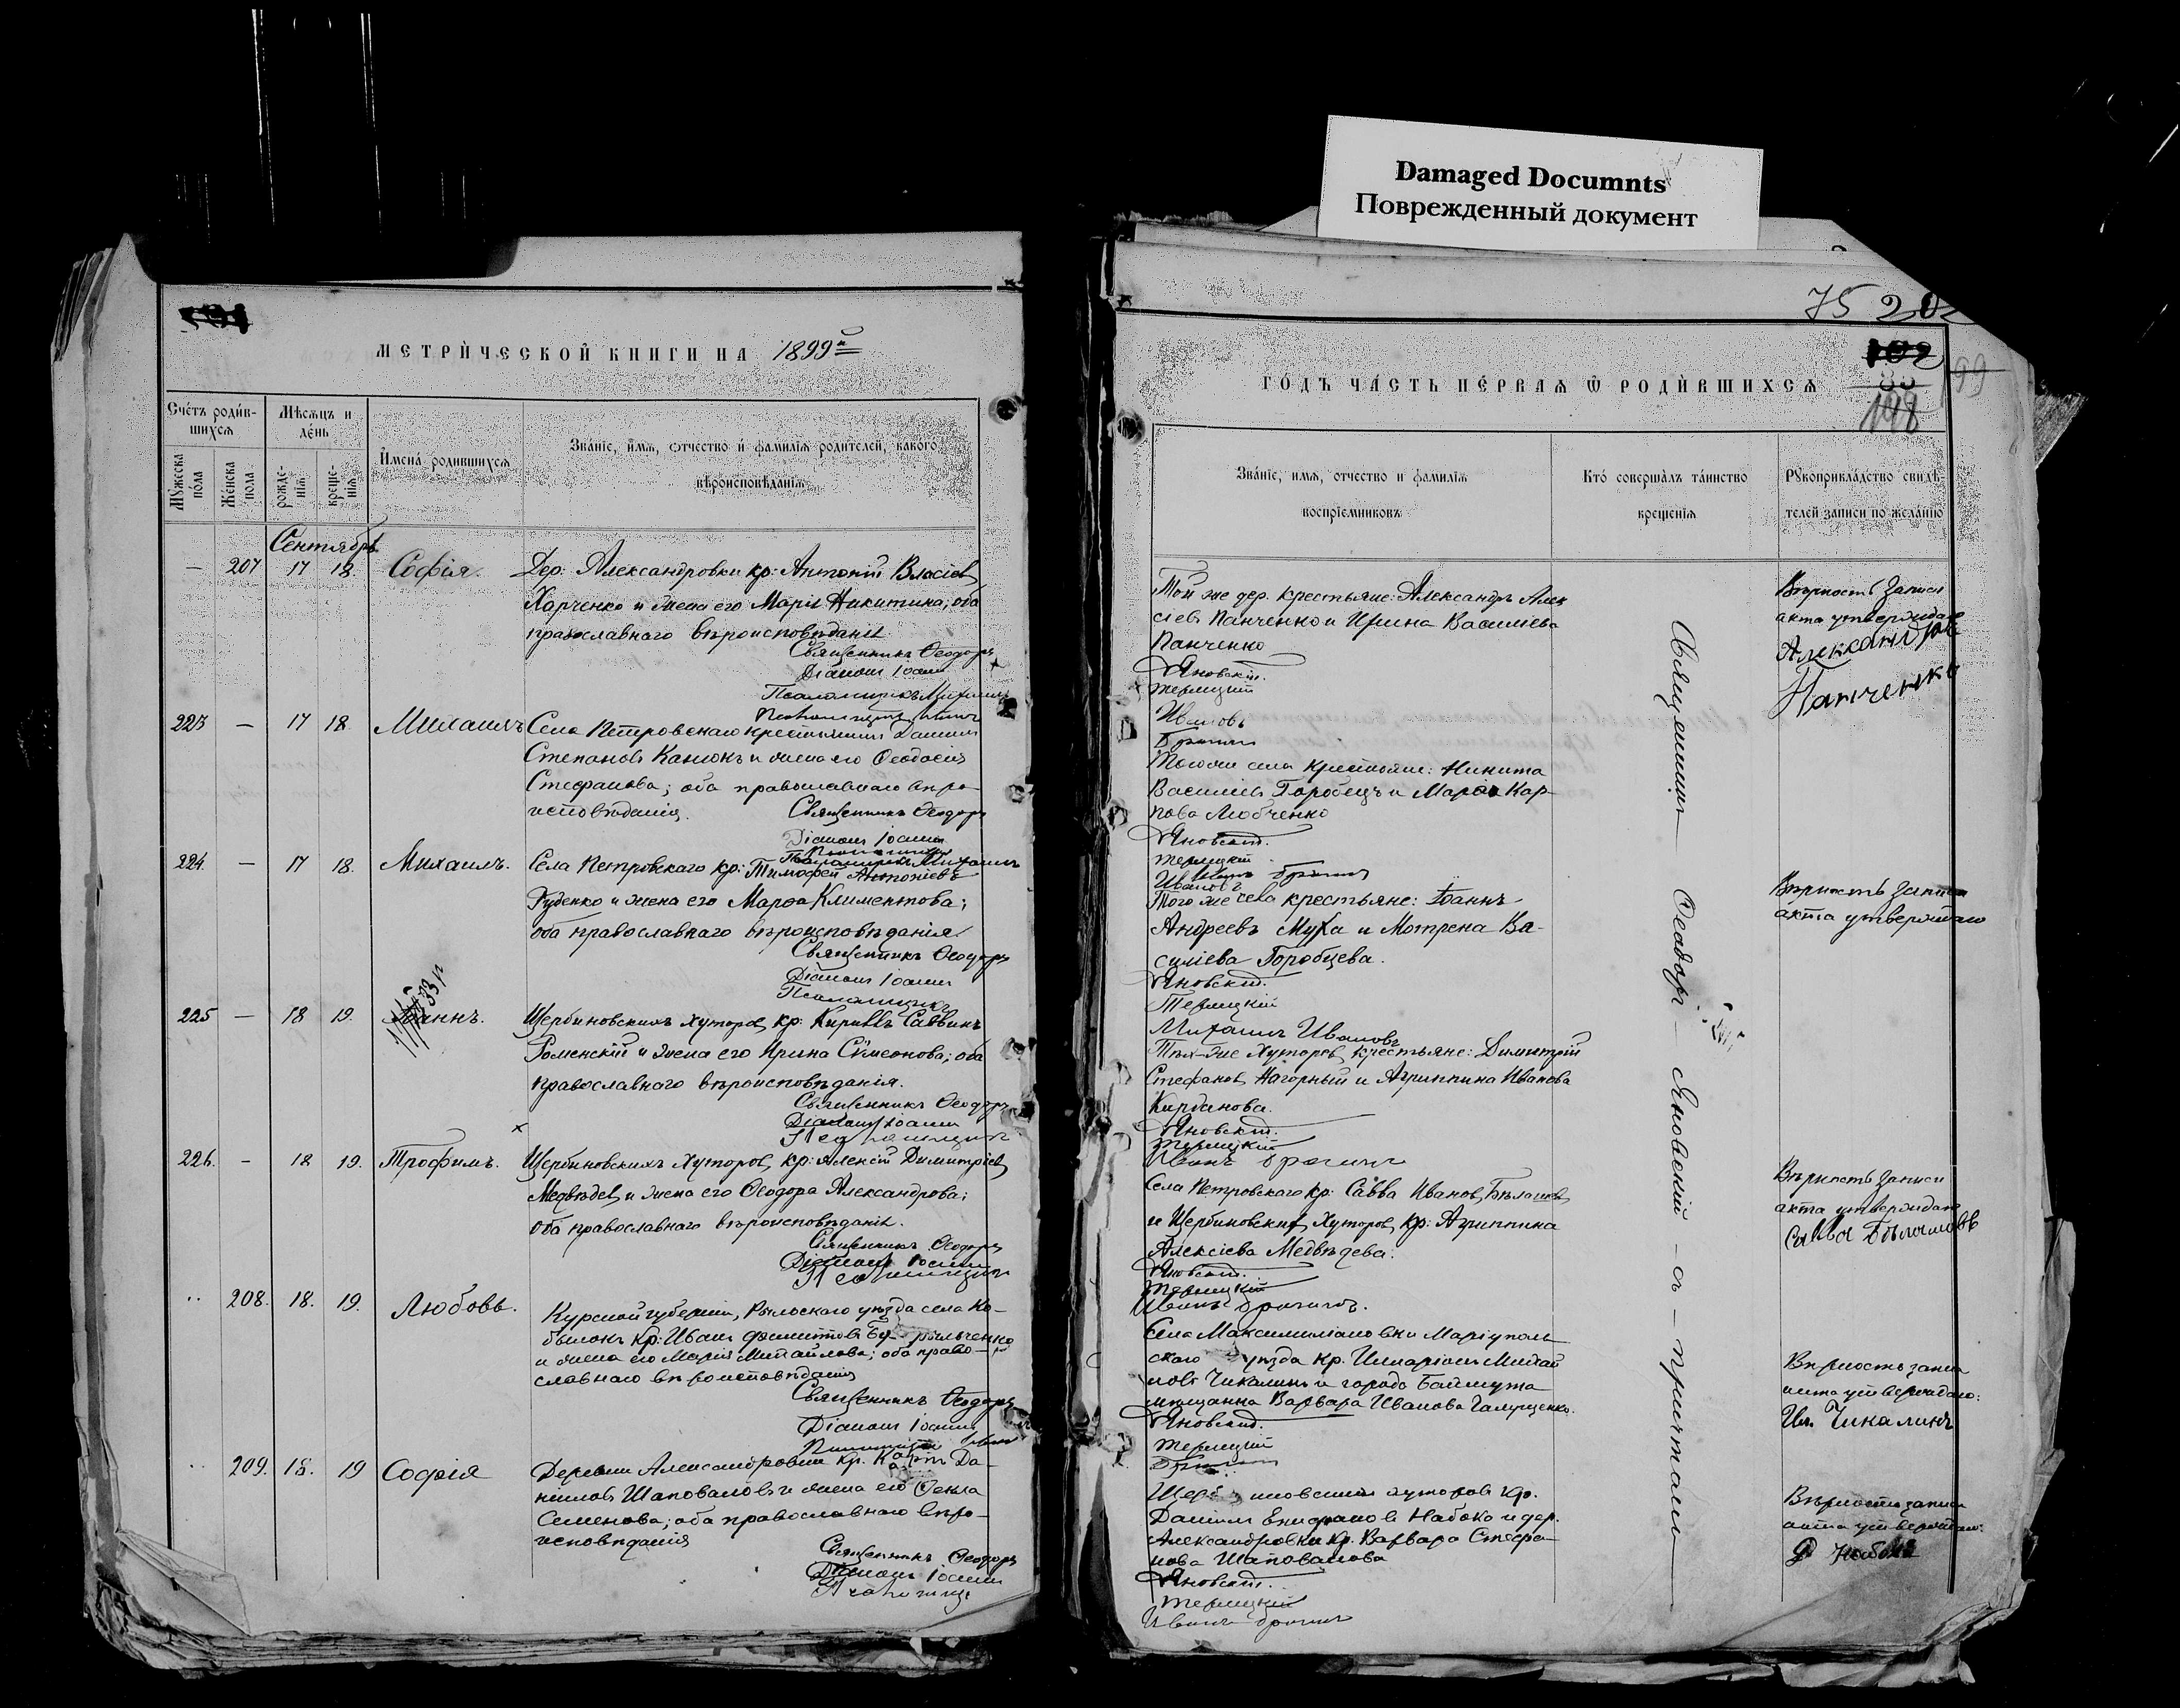 Damaged Documnts
Поврежденный документ
МЕТРИ́ЧЕСКОЙ КНИГИ НА 1899й
Сче́тъ роди́вшихсѧ
Мѣсѧцъ и де́нь
И҆мена̀ родившихсѧ
Зва́нїе, и҆мѧ, ѻтчество и҆ фамилїѧ родителей, како́гѡ вѣроисповѣ́данїѧ
Мꙋжеска по́ла
Же́нска пола
рожде́нїѧ
креще́нїѧ
Сентябрь
— 207 17 18. Софія. Дер: Александровки кр: Антоній Власіевъ
Харченко и жена его Марія Никитина; оба
православнаго вѣроисповѣданія
Священникъ Ѳеодоръ
Діаконъ Іоаннъ
Псаломщикъ Михаилъ
223 — 17 18. Михаилъ Села Петровскаго крестьянинъ Даніилъ
Степановъ Канюкъ и жена его Ѳеодосія
Стефанова; оба православнаго вѣро-
исповѣданія.
Священникъ Ѳеодоръ
Діаконъ Іоаннъ
Псаломщикъ Михаилъ
224. — 17 18. Михаилъ. Села Петровскаго кр: Тимофей Антоніевъ
Руденко и жена его Марѳа Климентова;
оба православнаго вѣроисповѣданія.
Священникъ Ѳеодоръ
Діаконъ Іоаннъ
Псаломщикъ
225 — 18 19. Іоаннъ. Щербиновскихъ хуторовъ, кр: Кириллъ Саввинъ
Роменскій и жена его Ирина Сѵмеонова; оба
православнаго вѣроисповѣданія.
Священникъ Ѳеодоръ
Діаконъ Іоаннъ
Псаломщикъ
226. — 18 19. Трофимъ. Щербиновскихъ хуторовъ, кр: Алексій Димитріевъ
Медвѣдевъ и жена его Ѳеодора Александрова;
оба православнаго вѣроисповѣданія.
Священникъ Ѳеодоръ
Діаконъ Іоаннъ
Псаломщикъ
208. 18. 19. Любовь. Курской губерніи, Рыльскаго уѣзда села Ко-
былокъ кр: Иванъ
и жена его Марія Михайлова; оба право-
славнаго вѣроисповѣданія
Священникъ Ѳеодоръ
Діаконъ Іоаннъ
209. 18. 19 Софія Деревни Александровки кр. Карпъ Да-
ниловъ Шаповаловъ и жена его Ѳекла
Семенова; оба православнаго вѣро-
исповѣданія
Священникъ Ѳеодоръ
Діаконъ Іоаннъ
Псаломщикъ
75 202
198
199
ГО́ДЪ ЧА́СТЬ ПЕ́РВАѦ Ѽ РОДИ́ВШИХСѦ
Зва́нїе, имѧ, отчество и фамилїѧ воспрїемниковъ
Кто́ соверша́лъ та́инство крещенїѧ
Рꙋкоприкла́дство свидѣ́телей записи по жела́нїю
Той же дер. крестьяне: Александръ Алек
сіевъ Панченко и Ирина Васильева
Панченко
Яновскій.
Термицкій
Ивановъ
Вѣрность записи
акта утверждаю
Александръ
Панченко
Того же села крестьяне: Никита
Василіевъ Горобецъ и Марія Кар-
пова Любченко
Яновскій.
Термицкій
Ивановъ
Того же села крестьяне: Іоаннъ
Андреевъ Муха и Мотрена Ва-
силіева Горобцева.
Яновскій.
Термицкій
Михаилъ Ивановъ
Вѣрность записи
акта утверждаю
Тѣхъ-же хуторовъ, крестьяне: Димитрій
Стефановъ Нагорный и Агриппина Иванова
Курбанова.
Яновскій.
Термицкій
Села Петровскаго кр: Савва Ивановъ Бѣлашовъ
и Щербиновскихъ хуторовъ, кр: Агриппина
Алексіева Медвѣдева.
Яновскій.
Термицкій
Вѣрность записи
акта утверждаю
Савва Бѣлашовъ
Села Максимиліановки Маріуполь
скаго уѣзда кр. Илларіонъ Михай
ловъ Чикалинъ и города Бахмута
мѣщанка Варвара Иванова Галущенко.
Яновскій.
Термицкій
Вѣрность записи
акта утверждаю:
Ил. Чикалинъ
Щербиновскихъ хуторовъ кр.
Даніилъ Епифановъ Набока и дер.
Александровки кр. Варвара Стефа-
нова Шаповалова
Яновскій.
Термицкій
Вѣрность записи
акта утверждаю:
Д Набока
Священникъ — Ѳеодоръ — Яновскій — съ — причтомъ